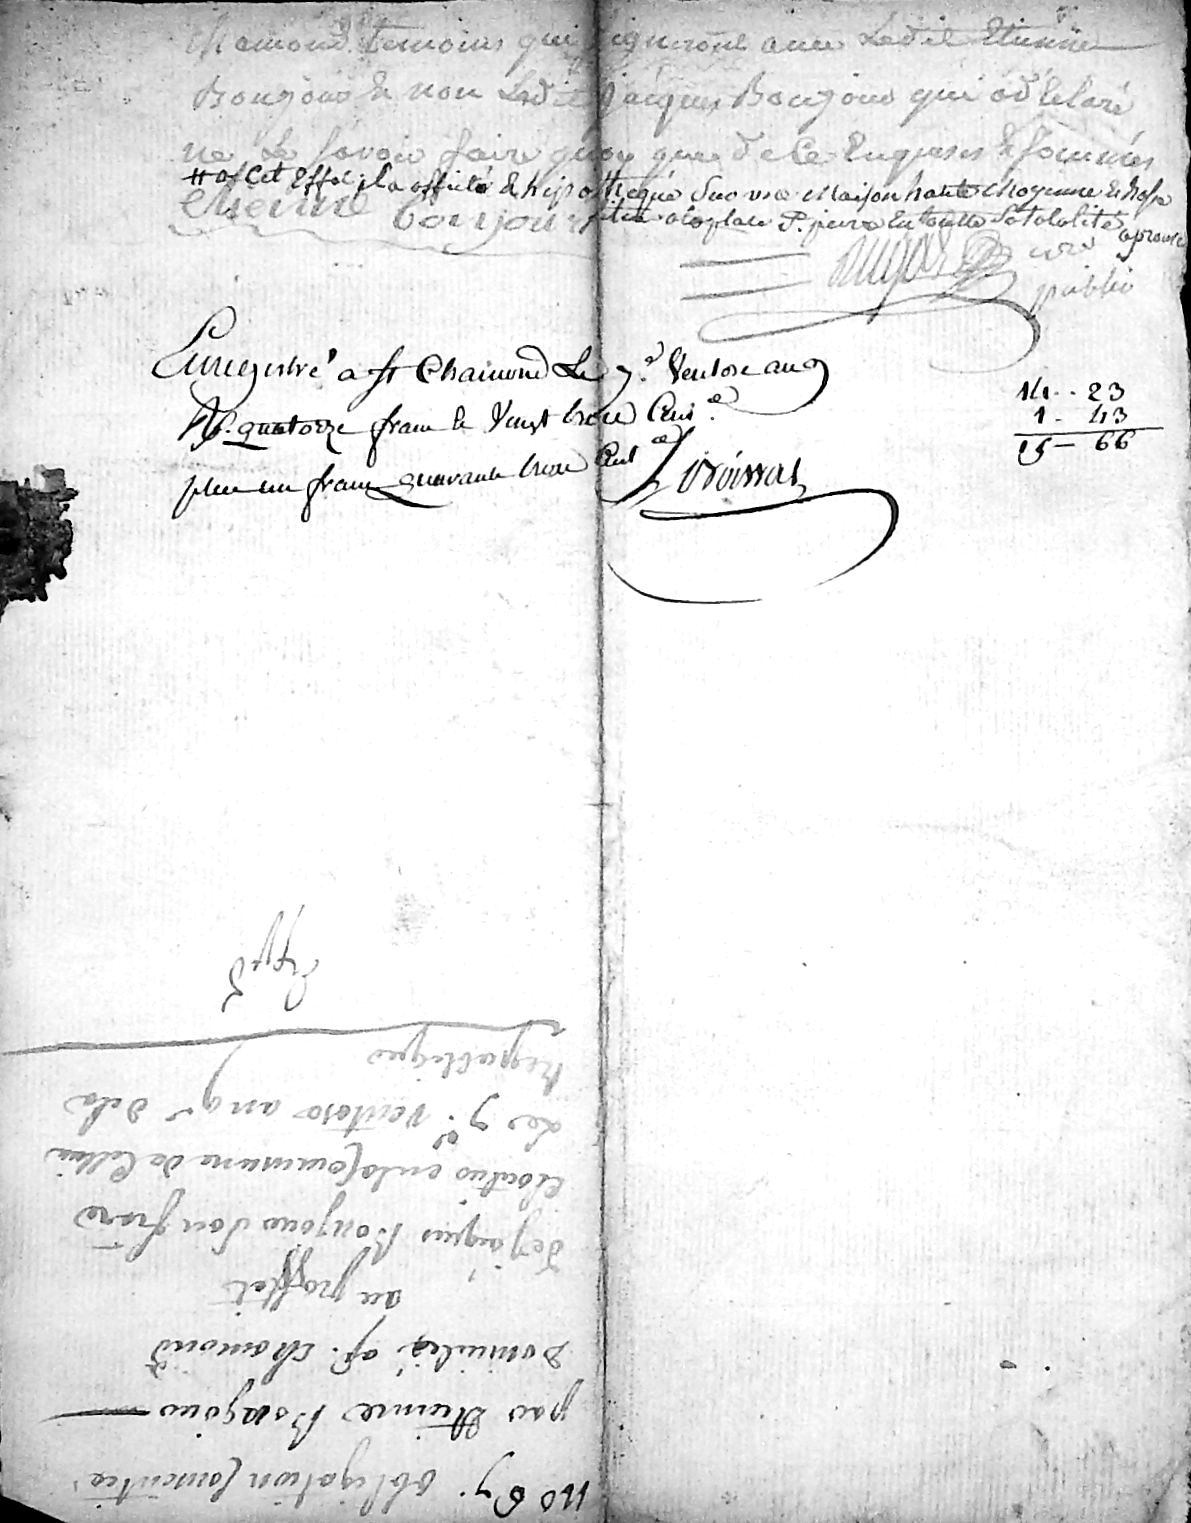 Chamond temoins qui signeront avec Ledit Etienne
Bonjour & non Ledit Jacques Bonjour qui a déclaré
ne Le savoir faire quoy que de Ce Enquesis & sommés
# a Cet Effet il a affecté & hipottequé Sur une Maison haute Moyenne & basse
place St. pierre En toutte Sa totalité aprouvé
etienne bonjour
noré
public
Enregistré a St Chaimond Le 9.e Ventose an 9
R. quatorze franc le Vingt trois Cent.e
plus un franc quarante trois Cent.e
14 .. 23
1 . 43
15 — 66
no 67. obligation Consentie
par Etienne Bonjour
Domicilié a St. Chamond
au proffet
de Jacques Bonjour Son frere
en la Commune de Cellieu
Le 9.e Ventose an 9e de la
Republique
Expd